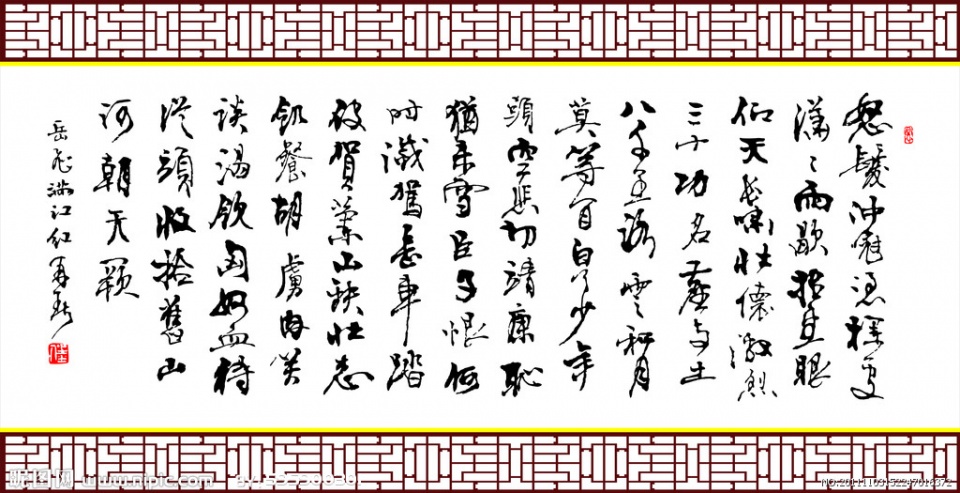 怒髮沖冠憑欄處
瀟々雨歇抬望眼
仰天長嘯壯懷激烈
三十功名塵與土
八千里路雲和月
莫等閒白了少年
頭空悲切靖康恥
猶未雪臣子恨何
时滅駕長車踏
破賀蘭山缺壯志
飢餐胡虜肉笑
談渴飲匈奴血待
從頭收拾舊山
河朝天闕
岳飛滿江紅
昵图网 www.nipic.com
NO:20111109152247016372